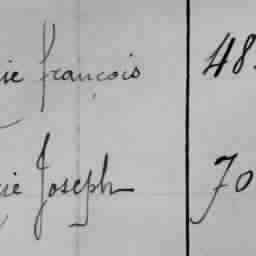 ie françois 48
ie Joseph 70